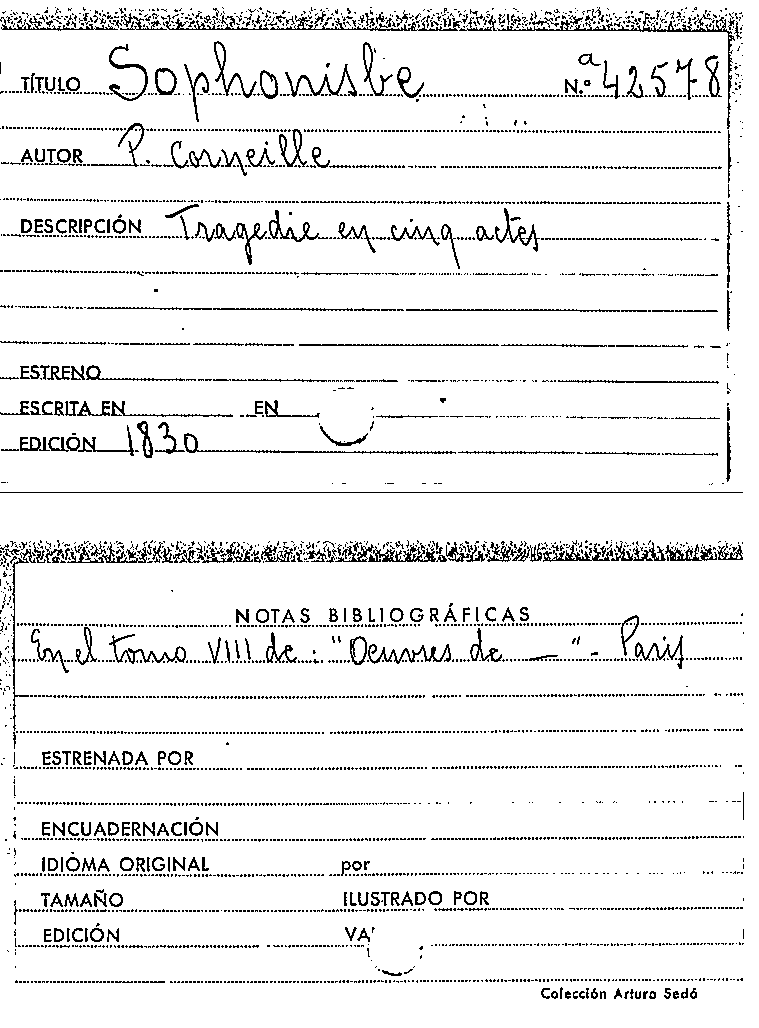 TÍTULO Sophonisbe N.º a 42578
AUTOR P. Corneille
DESCRIPCIÓN Tragedie en cinq actes
ESTRENO
ESCRITA EN EN
EDICIÓN 1830
NOTAS BIBLIOGRÁFICAS
En el tomo VIII de: "Oeuvres de — " - Paris
ESTRENADA POR
ENCUADERNACIÓN
IDIOMA ORIGINAL por
TAMAÑO ILUSTRADO POR
EDICIÓN
Colección Arturo Sedó